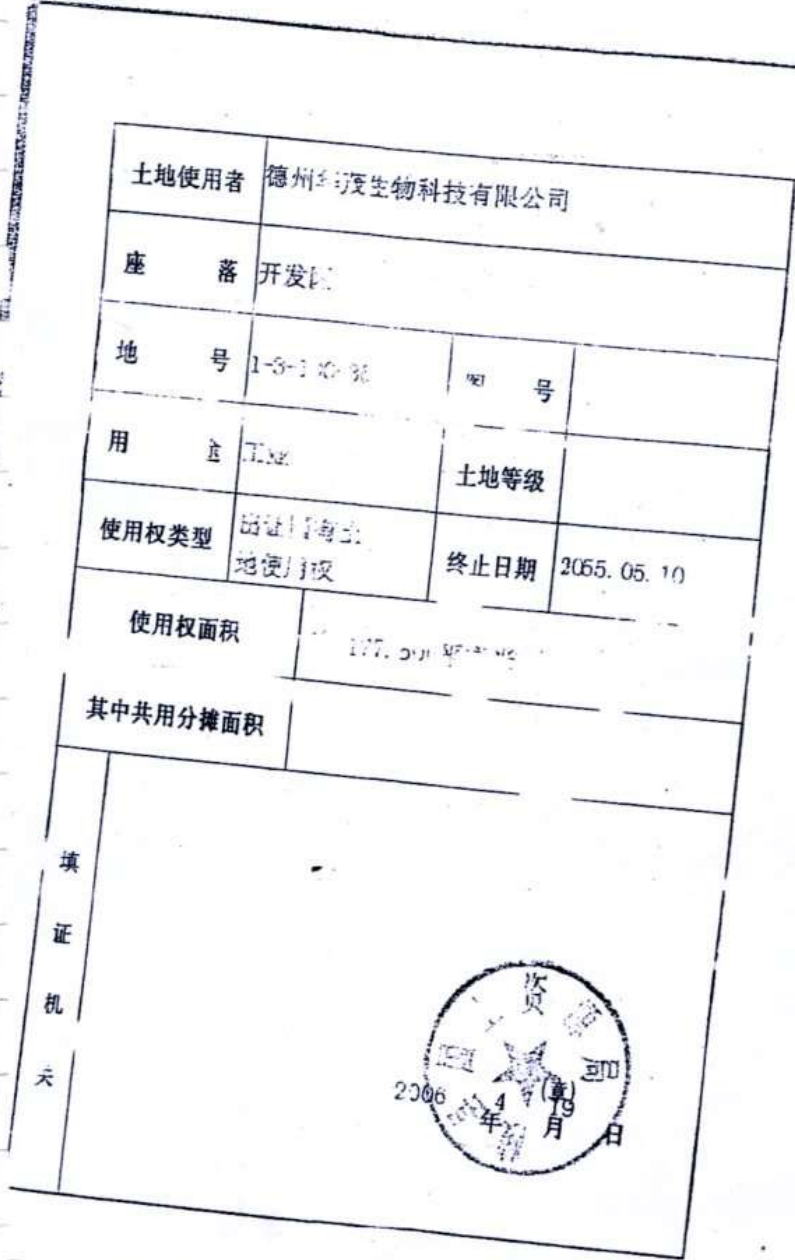 土地使用者 德州 生物科技有限公司
座 落 开发区
地 号 1-3-1 图 号
用 途 土地等级
使用权类型 出让国有土地使用权 终止日期 2055.05.10
使用权面积
其中共用分摊面积
填证机关
资源局
(章)
2006年4月19日